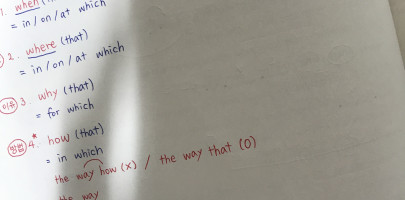 1. when
= in / on / at which
2. where (that)
= in / on / at which
이유 3. why (that)
= for which
방법 4.* how (that)
= in which
the way how (x) / the way that (O)
the way